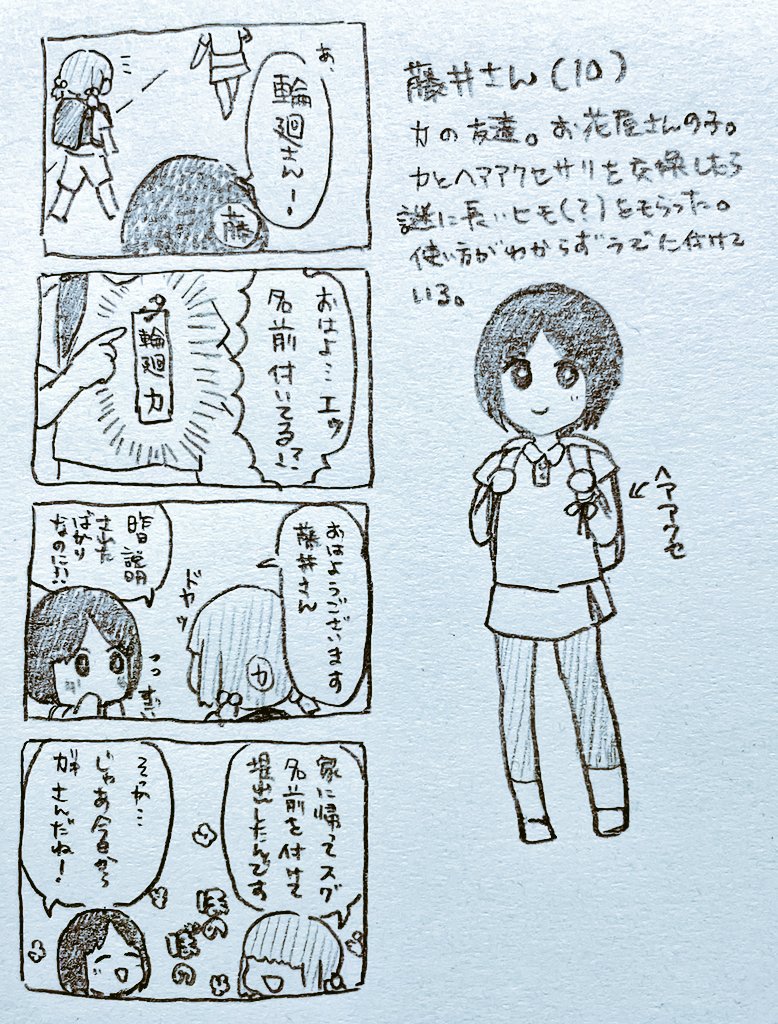 藤井さん(10)
カの友達。お花屋さんの子。
カとヘアアクセサリを交換したら
謎に長いヒモ(?)をもらった。
使い方がわからずうでに付けて
いる。
ヘアアクセ
あ、
輪廻さん!
藤
おはよ…エッ
名前付いてる!?
輪廻 カ
おはようございます
藤井さん
ドヤッ
カ
昨日説明
された
ばかり
なのに!!
家に帰ってスグ
名前を付けて
提出したんです
そっか…
じゃあ今日から
さんだね!
ほの
ぼの